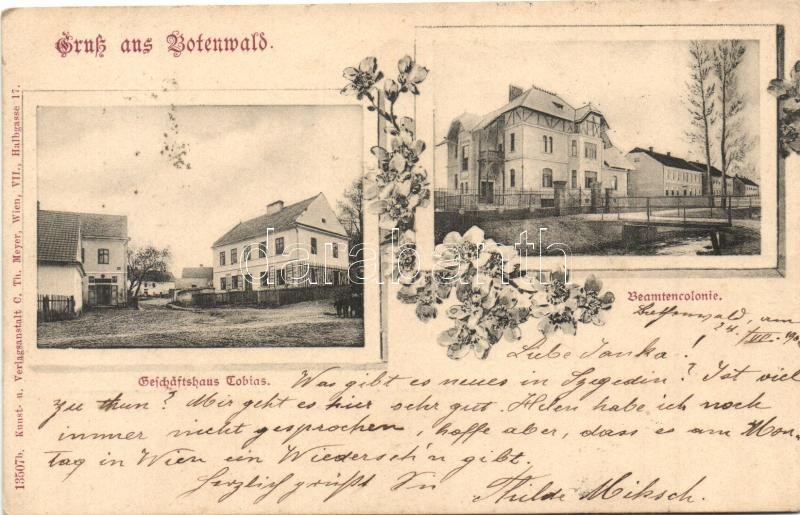 Gruß aus Botenwald.
13507b. Kunst- u. Verlagsanstalt C. Th. Meyer, Wien, VII., Halbgasse 17.
darabanth
Beamtencolonie.
Geschäftshaus Tobias.
Liebe Janka!
Was gibt es neues in Szegedin? Ist viel
zu thun? Mir geht es hier sehr gut. Helen habe ich noch
immer nicht gesprochen, hoffe aber, dass es am Mon-
tag in Wien ein Wiederseh'n gibt.
Herzlich grüßt
Thilde Miksch.